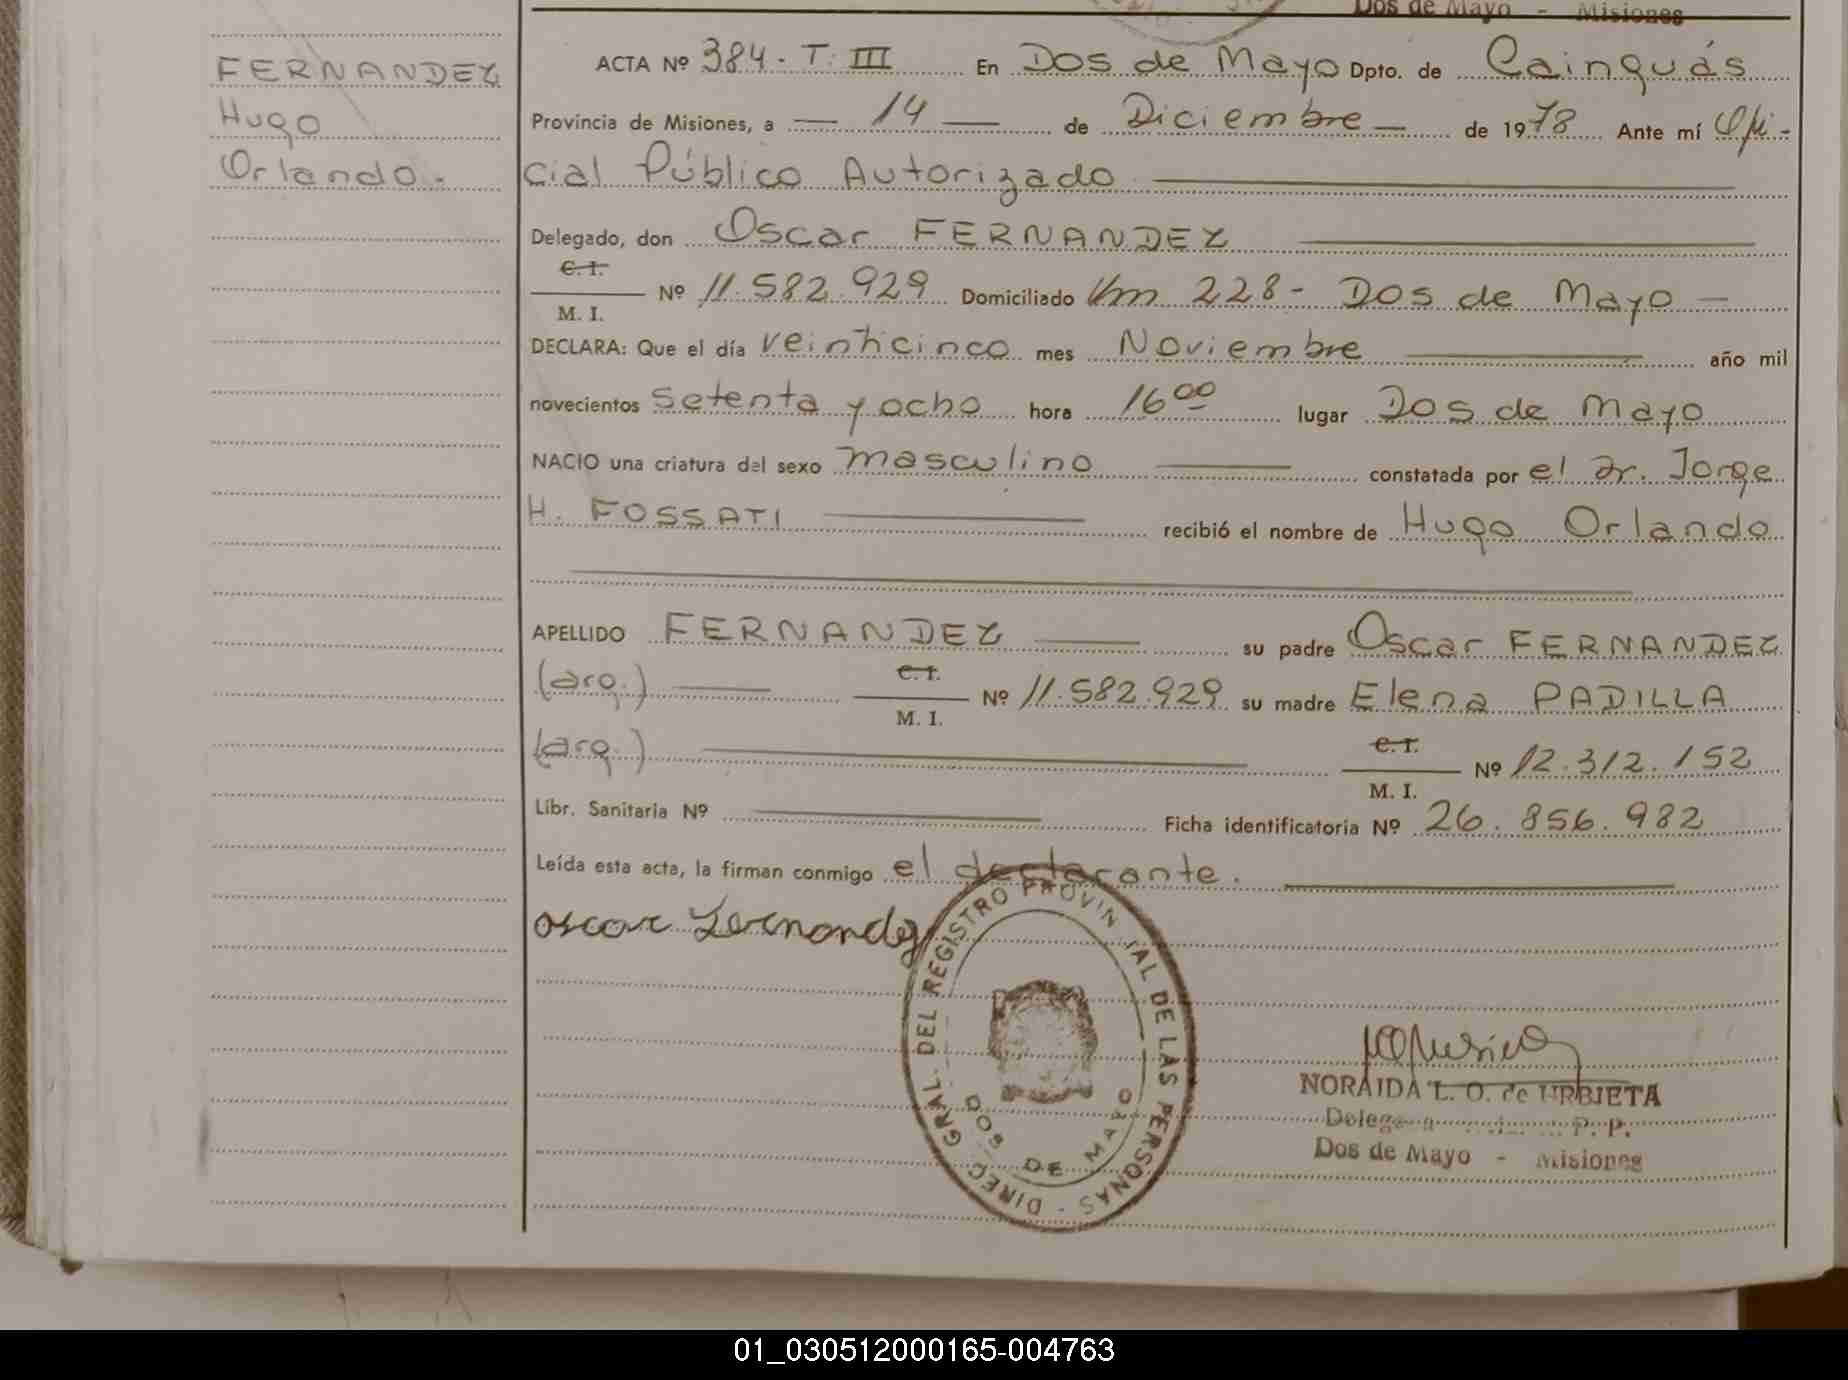 Dos de Mayo - Misiones
FERNANDEZ
Hugo
Orlando.-
ACTA Nº 384-T.III En Dos de Mayo Dpto. de Cainguás
Provincia de Misiones, a — 14 — de Diciembre — de 1978 Ante mí Ofi-
cial Público Autorizado
Delegado, don Oscar FERNANDEZ
C. I.
M. I. Nº 11.582.929 Domiciliado Km 228- Dos de Mayo —
DECLARA: Que el día veinticinco mes Noviembre año mil
novecientos setenta y ocho hora 16 00 lugar Dos de Mayo
NACIO una criatura del sexo masculino constatada por el Dr. Jorge
H. FOSSATI recibió el nombre de Hugo Orlando
APELLIDO FERNANDEZ su padre Oscar FERNANDEZ
(arg.) C. I. M. I. Nº 11.582.929 su madre Elena PADILLA
(arg.) C. I. M. I. Nº 12.312.152
Libr. Sanitaria Nº Ficha identificatoria Nº 26.856.982
Leída esta acta, la firman conmigo el declarante.
oscar Fernandez
DIREC. GRAL. DEL REGISTRO PROVINCIAL DE LAS PERSONAS -
DOS DE MAYO
NORAIDA L. O. de URBIETA
P. P.
Dos de Mayo - Misiones
01_030512000165-004763